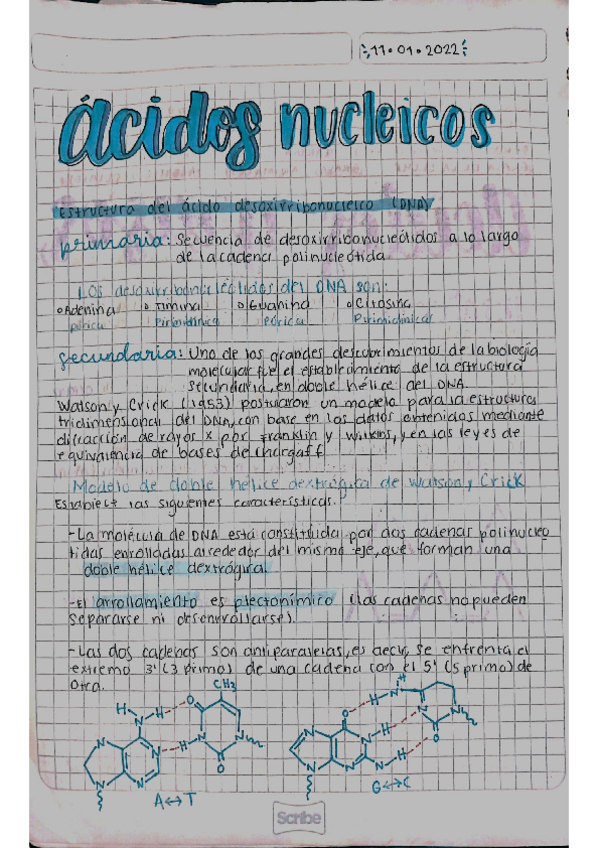 11•01•2022
ácidos nucleicos
Estructura del ácido desoxirribonucleico (DNA)
primaria: Secuencia de desoxirribonucleótidos a lo largo
de la cadena polinucleótida.
Los desoxirribonucleótidos del DNA son:
Adenina Timina Guanina Citosina
púrica Pirimidínica púrica Pirimidínica
secundaria: Uno de los grandes descubrimientos de la biología
molecular fue el establecimiento de la estructura
secundaria, en doble hélice del DNA.
Watson y Crick (1953) postularon un modelo para la estructura
tridimensional del DNA, con base en los datos obtenidos mediante
difracción de rayos x por Franklin y Wilkins, y en las leyes de
equivalencia de bases de Chargaff
Modelo de doble hélice dextrógira de Watson y Crick
Establece las siguientes características:
-La molécula de DNA está constituida por dos cadenas polinucleo
tidas enrolladas alrededor del mismo eje, que forman una
doble hélice dextrógira.
-El arrollamiento es plectonímico (las cadenas no pueden
separarse ni desenrrollarse).
-Las dos cadenas son antiparalelas, es decir, se enfrenta el
extremo 3' (3 primo) de una cadena con el 5' (5 primo) de
otra.
CH3
H N H O
N H N N
N N N O
A↔T
H
O H N
N N H N N
N N N H O
G↔C
Scribe